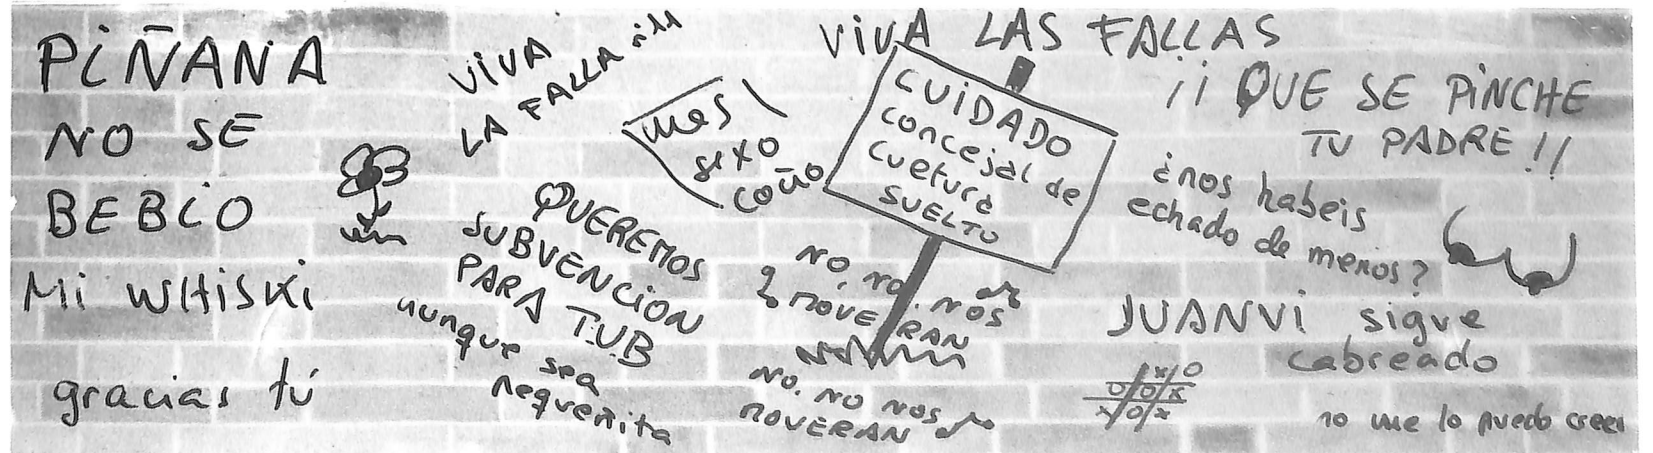 PIÑANA
NO SE
BEBIO
Mi WHiSKi
gracias tú
VIVA
LA FALLA
mes
sexo
coño
QUEREMOS
SUBVENCION
PARA T.U.B
aunque sea
pequeñita
VIVA LAS FALLAS
CUIDADO
concejal de
cueturà
SUELTO
NO, NO, NOS
MOVERAN
NO, NO NOS
MOVERAN
¡¡ QUE SE PINCHE
TU PADRE !!
¿nos habeis
echado de menos?
JUANVI sigue
cabreado
x o
o o x
x o x
no me lo puedo creer